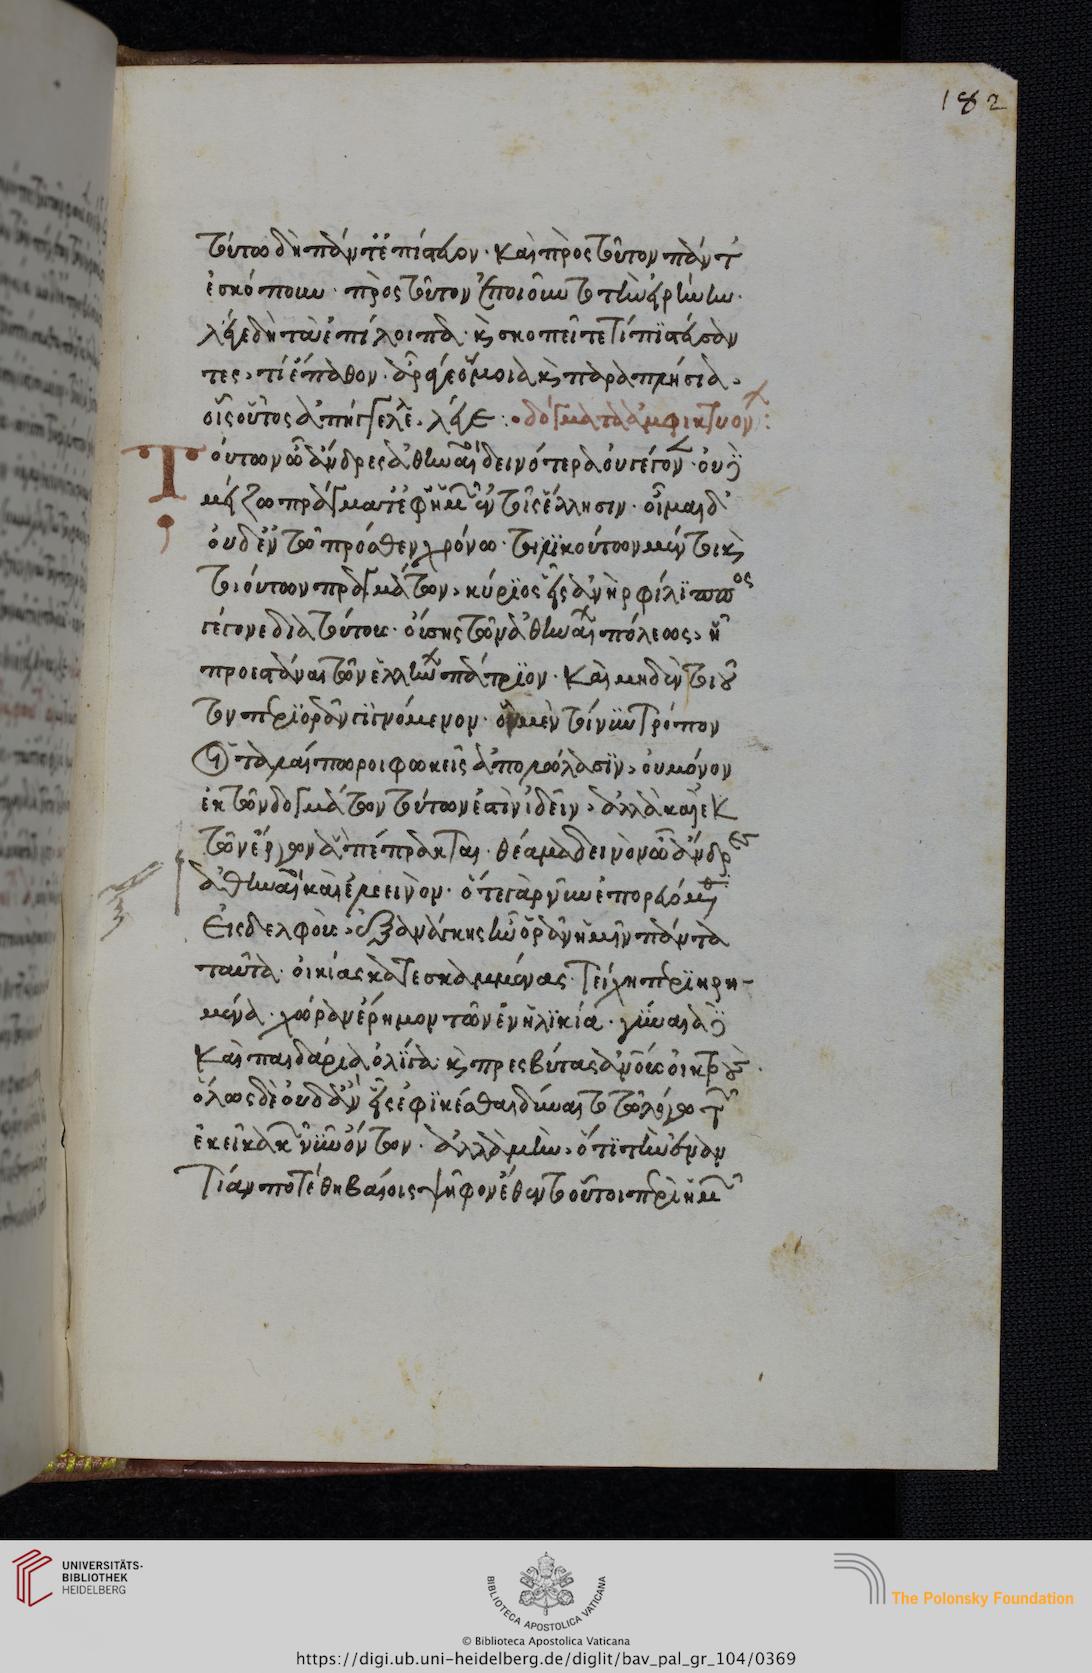 182
τούτω δὴ πάντ' ἐπίστευον· καὶ πρὸς τοῦτον πάντ'
ἐσκόπουν· πρὸς τοῦτον ἐποιοῦντο τὴν εἰρήνην.
λέγε δὴ τὰ ἐπίλοιπα· καὶ σκοπεῖτε τί πιστεύσαν
τες, τί ἔπαθον· ἆρά γε ὅμοια καὶ παραπλήσια,
οἷς οὗτος ἀπήγγελλε, λέγε :· δόγματα ἀμφικτυόνων :
Τούτων ὦ ἄνδρες ἀθηναῖοι δεινότερα οὐ γέγονεν· οὐδὲ
μείζω πράγματ' ἐφ' ἡμῶν ἐν τοῖς ἕλλησιν· οἶμαι δ'
οὐδ' ἐν τῷ πρόσθεν χρόνῳ· τηλικούτων μέντοι καὶ
τοιούτων πραγμάτων, κύριος εἷς ἀνὴρ φίλιππος
γέγονε διὰ τούτους· οὔσης τῶν ἀθηναίων πόλεως, ᾗ
προεστάναι τῶν ἑλλήνων πάτριον· καὶ μηδὲν τοιοῦ
τον περιορᾶν γιγνόμενον· ὃν μὲν τοίνυν τρόπον
οἱ ταλαίπωροι φωκεῖς ἀπολώλασιν, οὐ μόνον
ἐκ τῶν δογμάτων τούτων ἔστιν ἰδεῖν, ἀλλὰ καὶ ἐκ
τῶν ἔργων ἃ πέπρακται· θέαμα δεινὸν ὦ ἄνδρες
ἀθηναῖοι καὶ ἐλεεινόν· ὅτε γὰρ νῦν ἐπορευόμεθα
εἰς δελφοὺς, ἐξ ἀνάγκης ἦν ὁρᾶν ἡμῖν πάντα
ταῦτα· οἰκίας κατεσκαμμένας· τείχη περιῃρη-
μένα· χώραν ἔρημον τῶν ἐν ἡλικίᾳ· γύναια δὲ
καὶ παιδάρια ὀλίγα· καὶ πρεσβύτας ἀνθρώπους οἰκτρούς.
ὅλως δὲ οὐδ' ἂν εἷς ἐφικέσθαι δύναιτο τῷ λόγῳ τῶν
ἐκεῖ κακῶν νῦν ὄντων· ἀλλὰ μὴν, ὅτι τὴν ἐναν
τίαν ποτὲ θηβαίοις ψῆφον ἔθεντο οὗτοι περὶ ἡμῶν
UNIVERSITÄTS-
BIBLIOTHEK
HEIDELBERG
BIBLIOTECA APOSTOLICA VATICANA
The Polonsky Foundation
© Biblioteca Apostolica Vaticana
https://digi.ub.uni-heidelberg.de/diglit/bav_pal_gr_104/0369